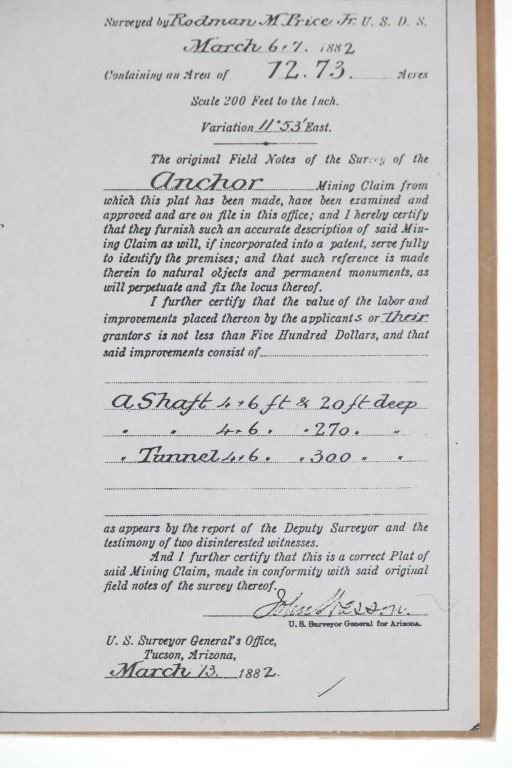 Surveyed by Rodman M. Price Jr. U. S. D. S.
March 6+7. 1882
Containing an Area of 12.73. Acres
Scale 200 Feet to the Inch.
Variation 11°53' East.
The original Field Notes of the Survey of the
Anchor Mining Claim from
which this plat has been made, have been examined and
approved and are on file in this office; and I hereby certify
that they furnish such an accurate description of said Min-
ing Claim as will, if incorporated into a patent, serve fully
to identify the premises; and that such reference is made
therein to natural objects and permanent monuments, as
will perpetuate and fix the locus thereof.
I further certify that the value of the labor and
improvements placed thereon by the applicants or their
grantors is not less than Five Hundred Dollars, and that
said improvements consist of
A Shaft 4+6 ft & 20 ft deep
" " 4+6 " " 270 " "
" Tunnel 4+6 " " 300 " "
as appears by the report of the Deputy Surveyor and the
testimony of two disinterested witnesses.
And I further certify that this is a correct Plat of
said Mining Claim, made in conformity with said original
field notes of the survey thereof.
John Wasson.
U. S. Surveyor General for Arizona.
U. S. Surveyor General's Office,
Tucson, Arizona,
March 13. 1882.